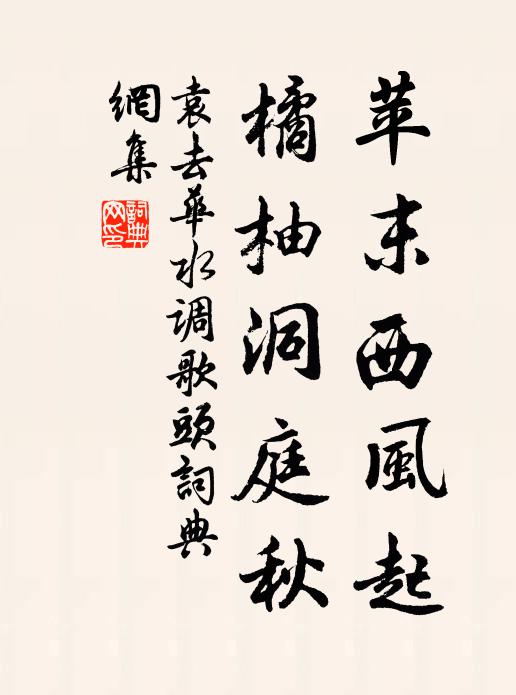 苹末西風起
橘柚洞庭秋
袁去華水调歌頭詞典
網集
詞典
网印